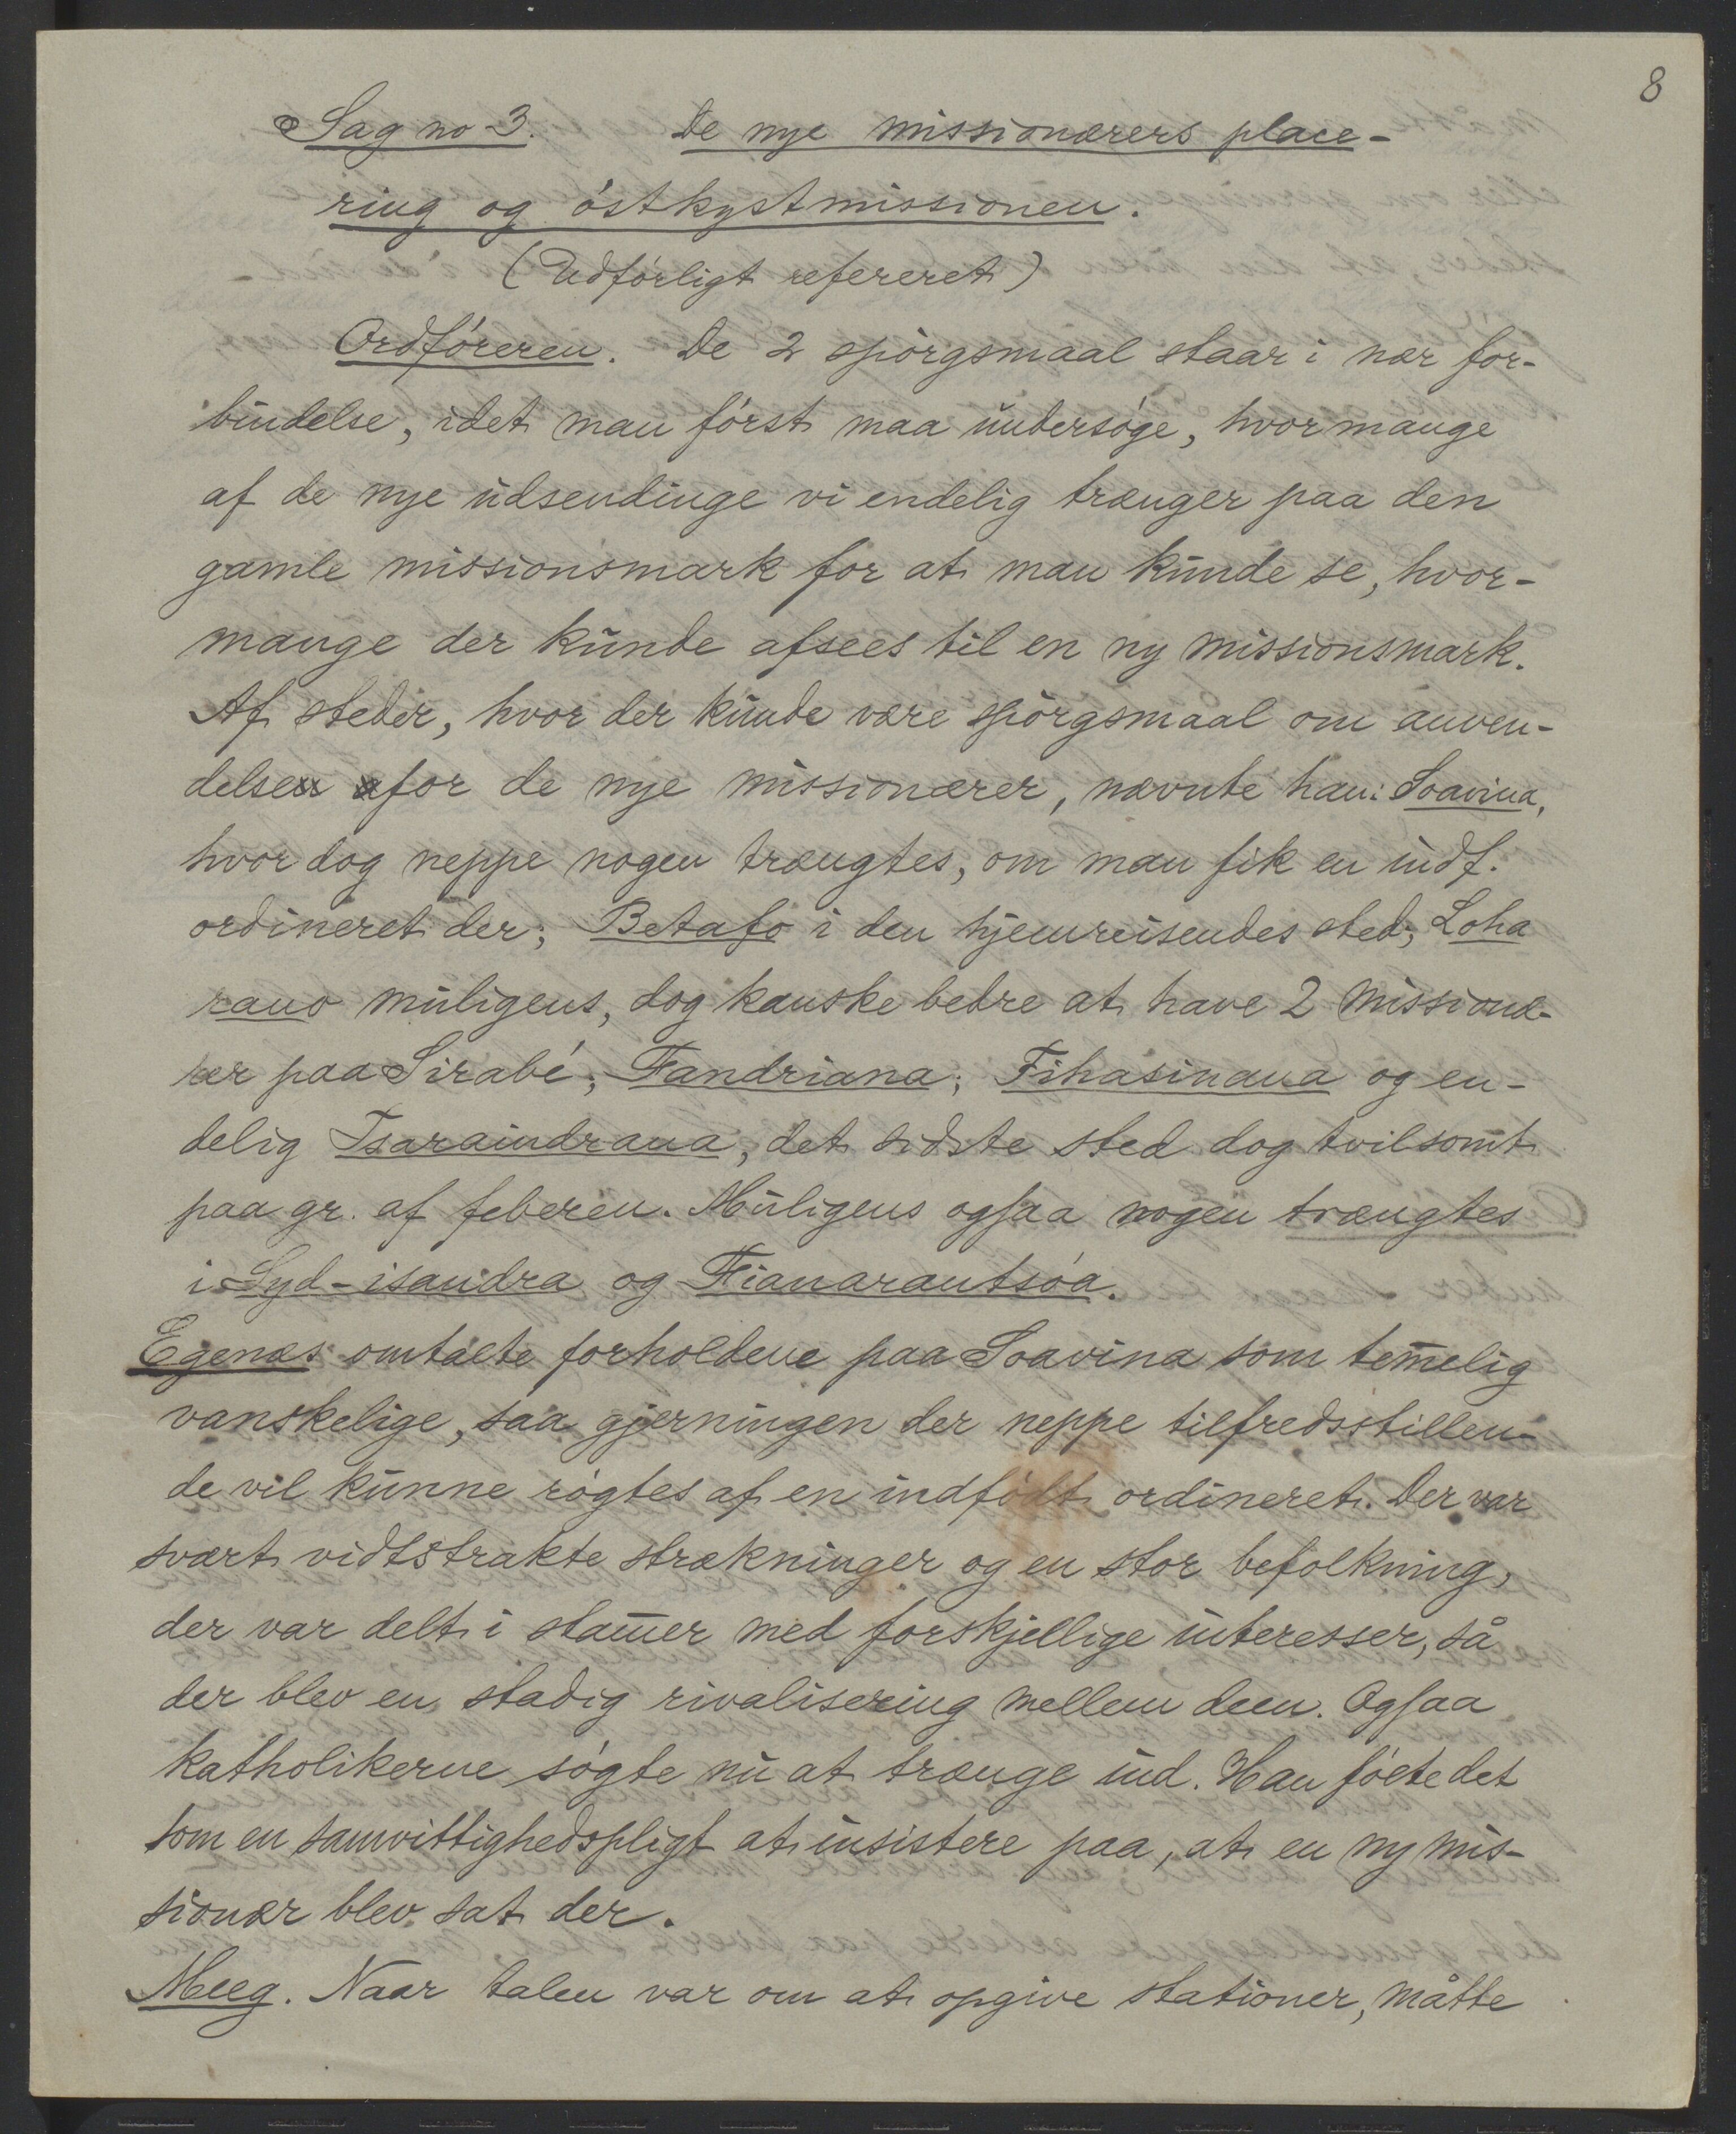 8
Sag no 3. De nye missionærers place-
ring og östkystmissionen.
(Udförligt refereret)
Ordföreren. De 2 spörgsmaal staar i nær for-
bindelse, idet man först maa undersöge, hvormange
af de nye udsendinge vi endelig trænger paa den
gamle missionsmark for at man kunde se, hvor-
mange der kunde afsees til en ny missionsmark.
Af steder, hvor der kunde være spörgsmaal om anven-
delse for de nye missionærer, nævnte han: Soavina,
hvor dog neppe nogen trængtes, om man fik en indf.
ordineret der; Betafo i den hjemreisendes sted; Loha
rano muligens, dog kanske bedre at have 2 missionæ-
rer paa Sirabé; Fandriana; Fihasinana og en-
delig Tsaraindrana, det sidste sted dog tvilsomt
paa gr. af feberen. Muligens ogsaa nogen trængtes
i Syd-isandra og Fianarantsóa.
Egenæs omtalte forholdene paa Soavina som tem̅elig
vanskelige, saa gjerningen der neppe tilfredsstillen-
de vil kunne rögtes af en indfödt ordineret. Der var
svært vidtstrakte strækninger og en stor befolkning,
der var delt i stam̅er med forskjellige interesser, så
der blev en stadig rivalisering mellem deen. Ogsaa
katholikerne sögte nu at trænge ind. Han fölte det
som en samvittighedspligt at insistere paa, at en ny mis-
sionær blev sat der.
Meeg. Naar talen var om at opgive stationer, måtte